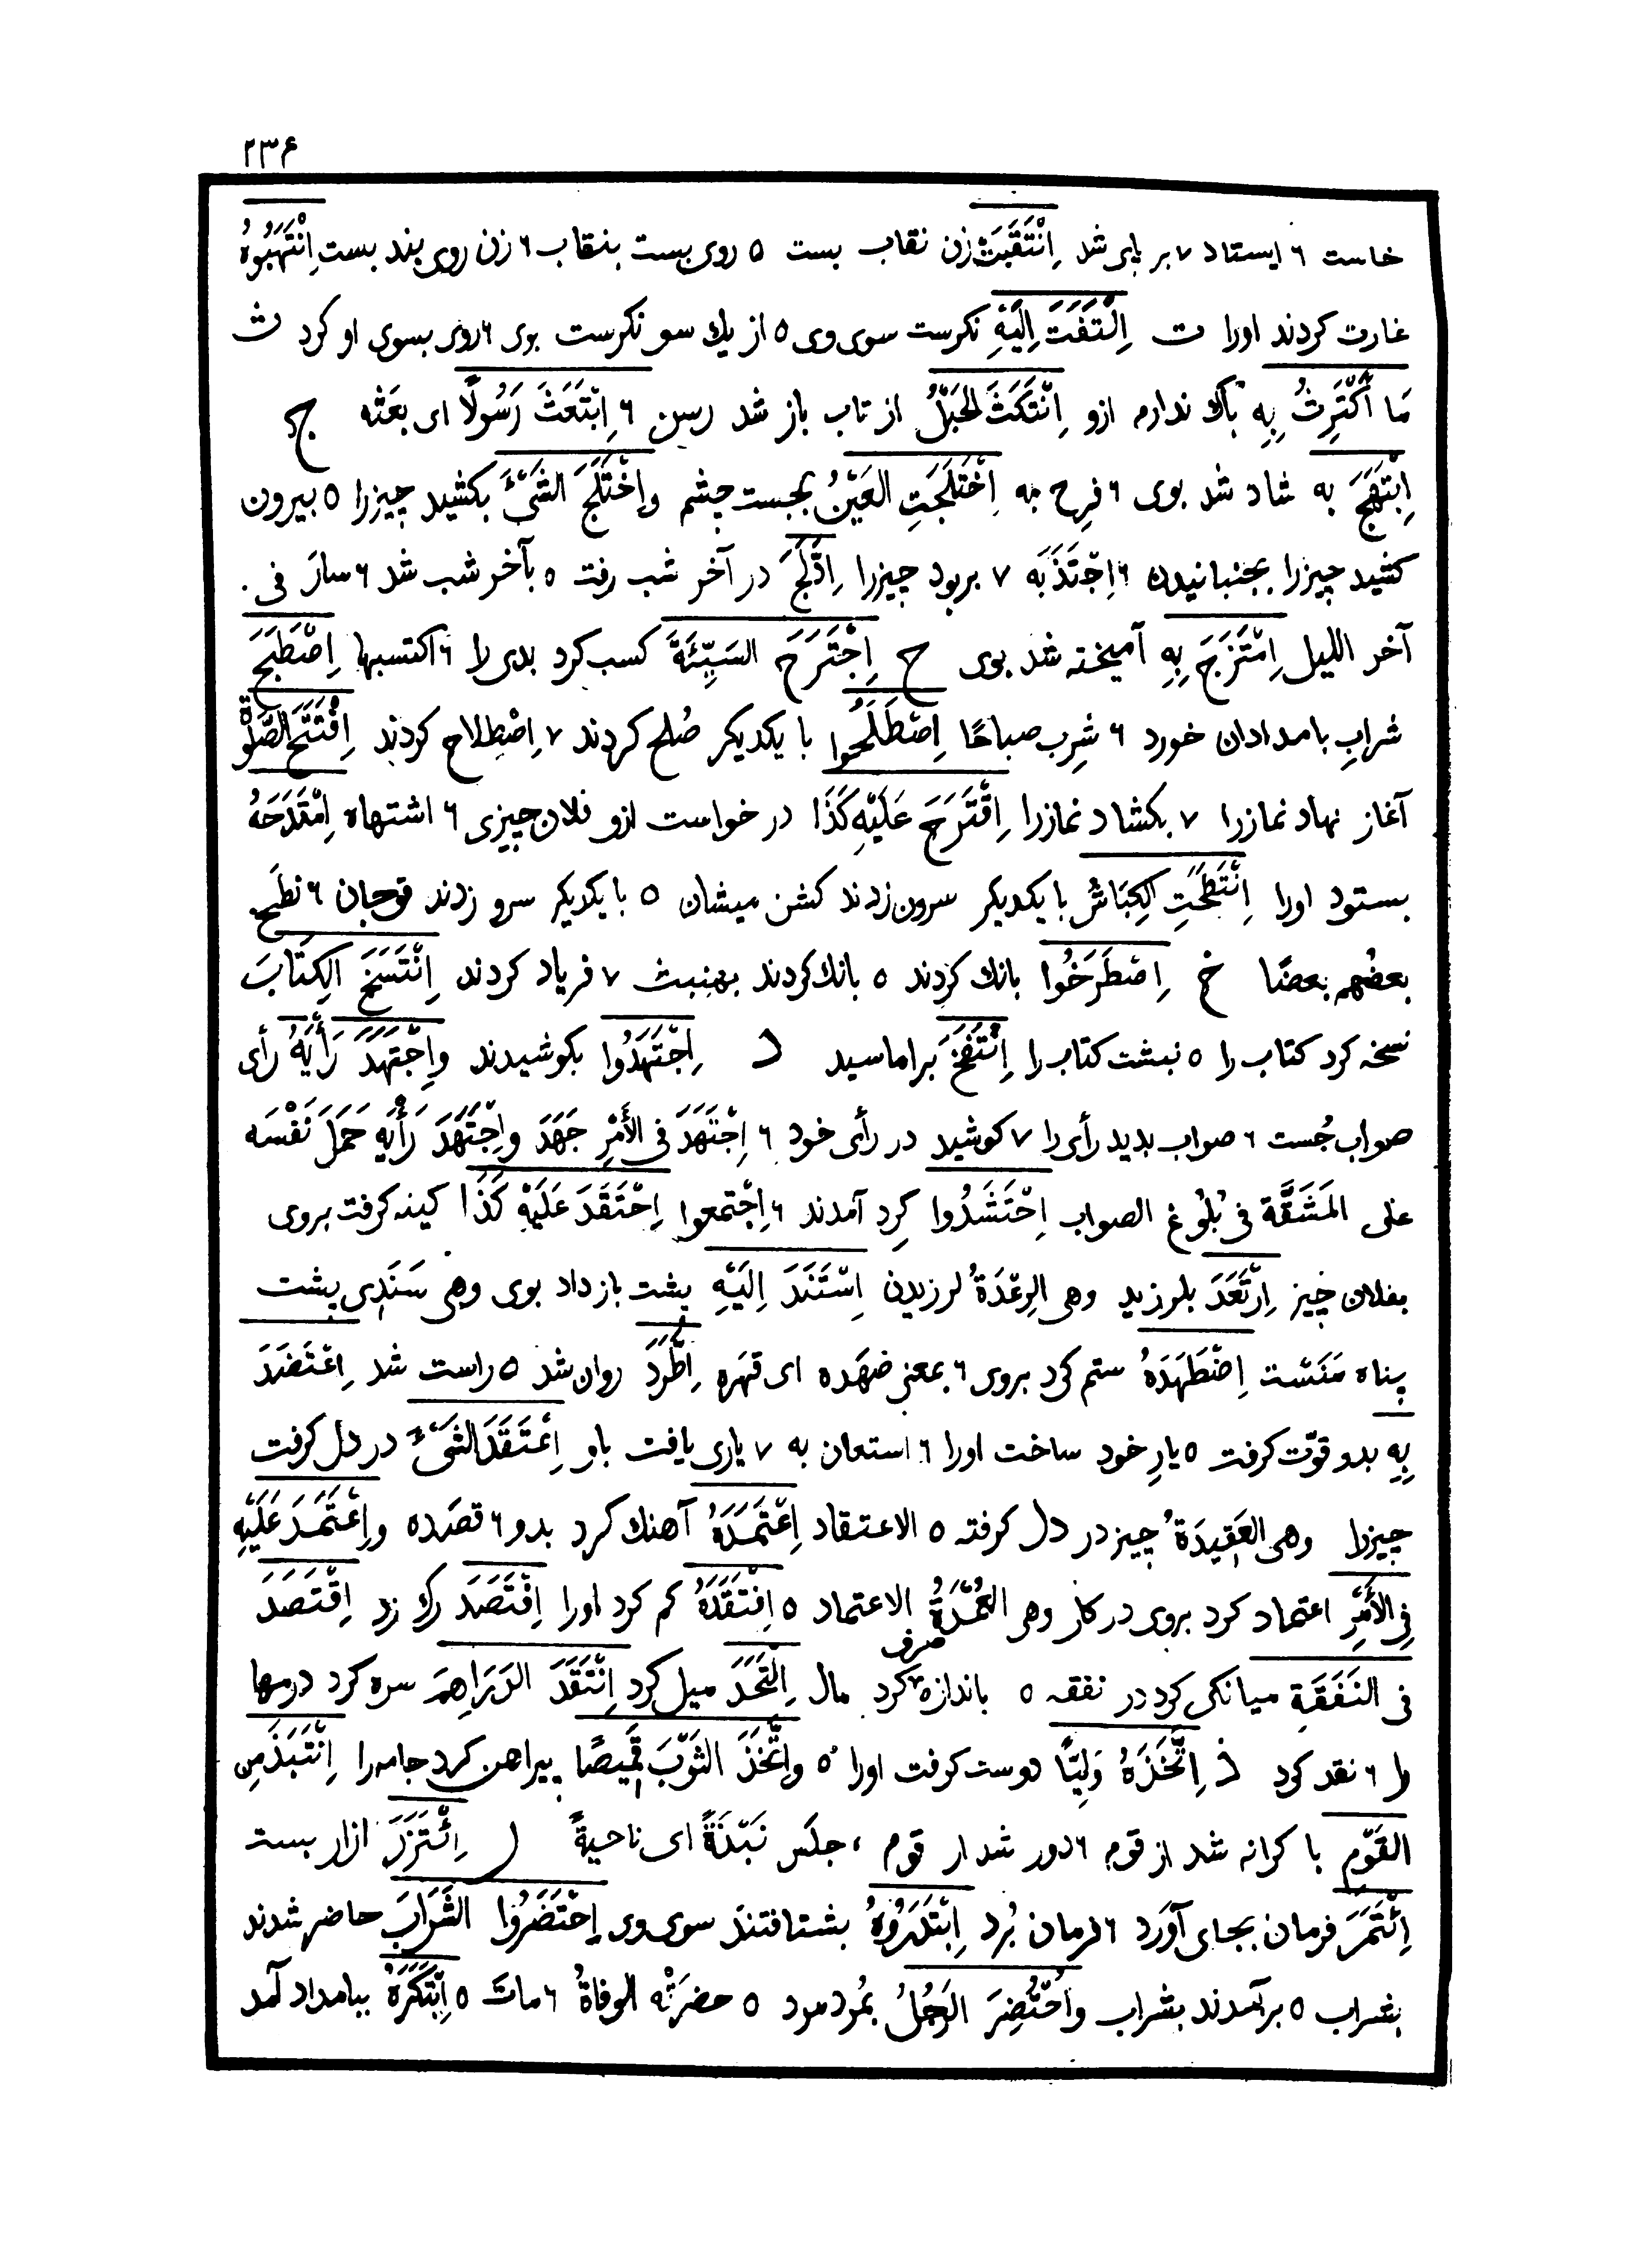 ۲۳۶
خاست ۶ ایستاد ۷ بر پای شد اِنْتَقَبَتْ زن نقاب بست ۵ روی بست بنقاب ۶ زن روی بند بست اِنْتَهَبُوهُ
غارت کردند اورا ت اِلْتَفَتَ اِلَیْهِ نکرست سوی وی ۵ از یك سو نکرست بوی ۶ روی بسوی او کرد ث
مَا أَکْتَرِثُ بِهِ باك ندارم ازو اِنْتَکَثَ الحَبْلُ از تاب باز شد رسن ۶ اِبْتَعَثَ رَسُولًا ای بعَثه ج
اِبْتَهَجَ به شاد شد بوی ۶ فرِح به اِخْتَلَجَتِ العَیْنُ بجست چشم واِخْتَلَجَ الشَیْءَ بکشید چیزرا ۵ بیرون
کشید چیزرا بجنبانیدن ۶ اِجْتَذَبَه ۷ بربود چیزرا اِدَّلَجَ در آخر شب رفت ۵ بآخر شب شد ۶ سارَ فی
آخر اللیل اِمْتَزَجَ بِهِ آمیخته شد بوی ح اِجْتَرَحَ السَیِّئَةَ کسب کرد بدی را ۶ اکتسبها اِصْطَبَحَ
شرابِ بامدادان خورد ۶ شرِب صباحًا اِصْطَلَحُوا با یکدیکر صُلح کردند ۷ اِصْطِلاح کردند اِفْتَتَحَ الصَّلٰوةَ
آغاز نهاد نمازرا ۷ بکشاد نمازرا اِقْتَرَحَ عَلَیْهِ کَذَا در خواست ازو فلان چیزی ۶ اشتهاه اِمْتَدَحَهُ
بستود اورا اِنْتَطَحَتِ الکِبَاشُ با یکدیکر سرون زدند کشن میشان ۵ با یکدیکر سرو زدند قوچان ۶ نطَح
بعضُهم بعضًا خ اِصْطَرَخُوا بانك کردند ۵ بانك کردند بهنبث ۷ فریاد کردند اِنْتَسَخَ الکِتَابَ
نسخه کرد کتاب را ۵ نبشت کتاب را اِنْتَفَخَ براماسید د اِجْتَهَدُوا بکوشیدند واِجْتَهَدَ رَأْیَهُ رأی
صواب جُست ۶ صواب بدید رأی را ۷ کوشید در رأی خود ۶ اِجْتَهَدَ فی الأَمْرِ جَهَدَ واِجْتَهَدَ رَأْیَهِ حَمَلَ نَفْسَه
علی المَشَقَّة فی بُلُوغ الصواب اِحْتَشَدُوا کِرد آمدند ۶ اِجْتمعوا اِحْتَقَدَ عَلَیْهِ کَذَا کینه کرفت بروی
بفلان چیز اِرْتَعَدَ بلرزید وهی الرِعْدَةُ لرزیدن اِسْتَنَدَ اِلَیْهِ پشت باز داد بوی وهی سَنَدِی پشت
پناه مَنَسْت اِضْطَهَدَهُ ستم کرد بروی ۶ بمعنی ضهَده ای قهَره اِطَّرَدَ روان شد ۵ راست شد اِعْتَضَدَ
بِهِ بدو قوّت کرفت ۵ یارِ خود ساخت اورا ۶ استعان به ۷ یاری یافت باو اِعْتَقَدَ الشَیْءَ در دل کرفت
چیزرا وهی العَقِیدَةُ چیز در دل کرفته ۵ الاعتقاد اِعْتَمَدَهُ آهنك کرد بدو ۶ قصَده واِعْتَمَدَ عَلَیْهِ
فِی الأَمْرِ اعتماد کرد بروی در کار وهی العُمْدَةُ الاعتماد ۵ اِفْتَقَدَهُ کم کرد اورا اِفْتَصَدَ رك زد اِقْتَصَدَ
فی النَفَقَةِ میانکی کرد در نفقه ۵ باندازه صرف کرد مال اِلْتَحَدَ میل کرد اِنْتَقَدَ الدَرَاهِمَ سره کرد درمها
را ۶ نقد کرد ذ اِتَّخَذَهُ وَلِیًّا دوست کرفت اورا ۵ واِتَّخَذَ الثَوْبَ قَمِیصًا پیراهن کرد جامه را اِنْتَبَذَ مِنِ
القَوْمِ با کرانه شد از قوم ۶ دور شد از قوم ، جلَس نَبْذَةً ای ناحیةً ر اِئْتَزَرَ ازار بست
اِئْتَمَرَ فرمان بجای آوَرد ۶ فرمان بُرد اِبْتَدَرُوهُ بشتافتند سوی وی اِحْتَضَرُوا الشَرَابَ حاضر شدند
بشراب ۵ برآمدند بشراب واُحْتُضِرَ الرَجُلُ بمُرد مرد ۵ حضرَتْه الوفاةُ ۶ ماتَ ۵ اِبْتَکَرَهُ ببامداد آمد